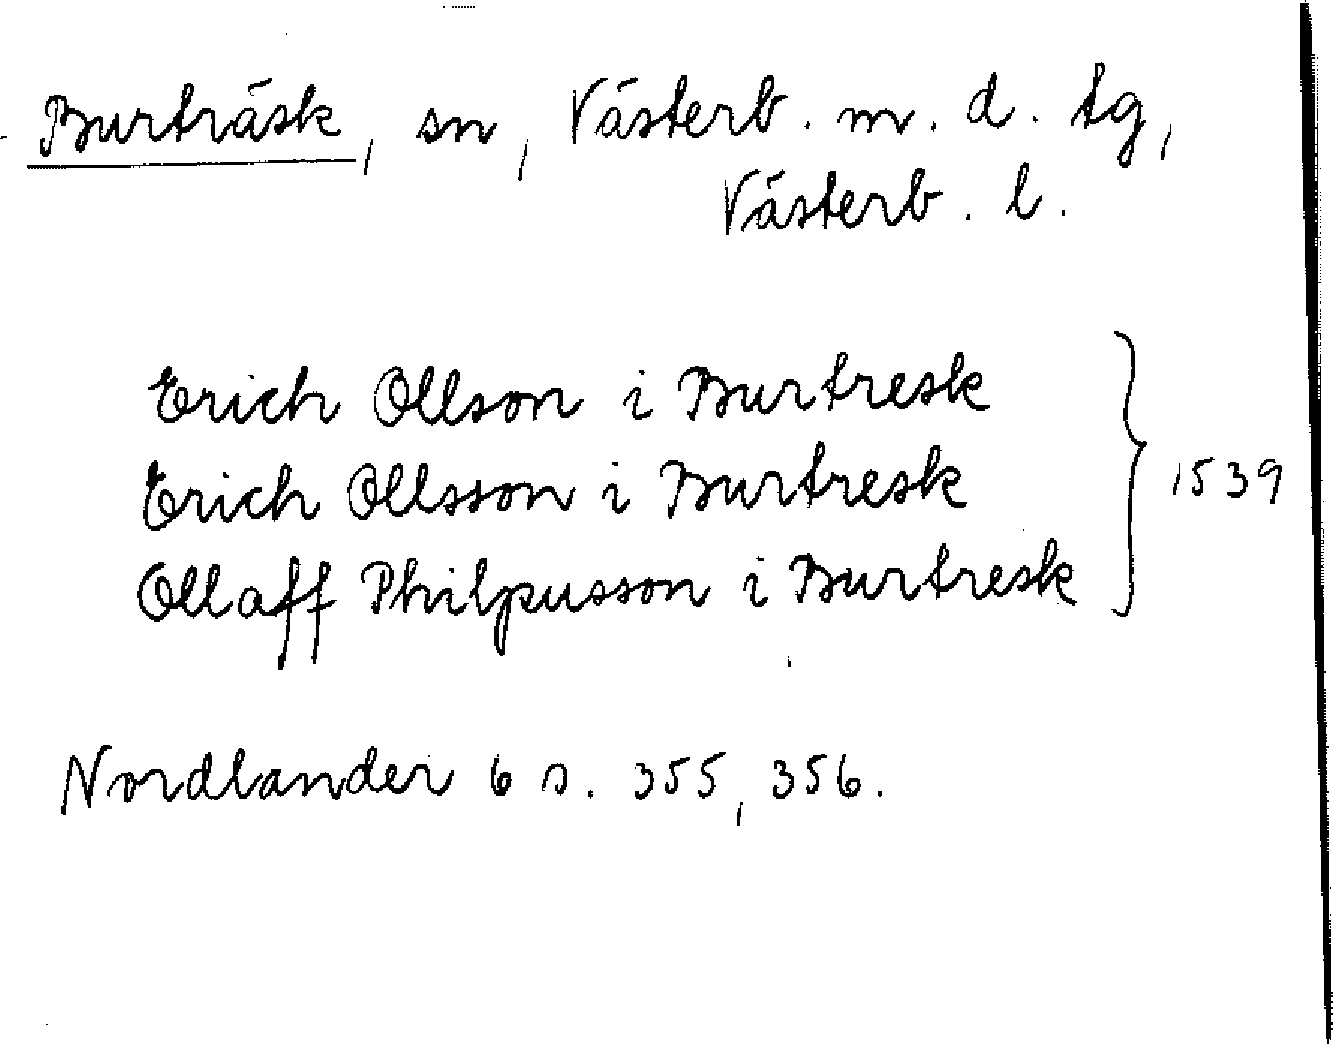 Burträsk, sn, Västerb. m. d. tg,
Västerb. l.
Erich Ollson i Burtresk
Erich Ollsson i Burtresk
1539
Ollaff Philpusson i Burtresk
Nordlander 6 s. 355, 356.